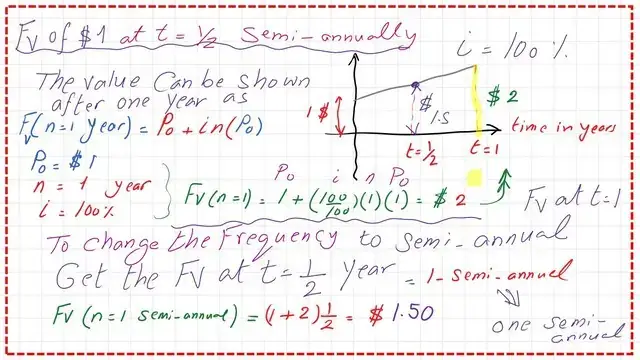 Fv of $1 at t = 1/2 Semi-annually
i = 100 %
The value Can be shown
after one year as
Fv(n=1 year) = Po + in(Po)
Po = $1
n = 1 year
i = 100%
1 $
$ 1.5
$ 2
t=1/2
t=1
time in years
Po i n Po
Fv(n=1) = 1 + (100/100)(1)(1) = $ 2
Fv at t=1
To change the Frequency to semi-annual
Get the Fv at t=1/2 year = 1-semi-annual
Fv (n=1 semi-annual) = (1+2)1/2 = $ 1.50
one semi-
annual